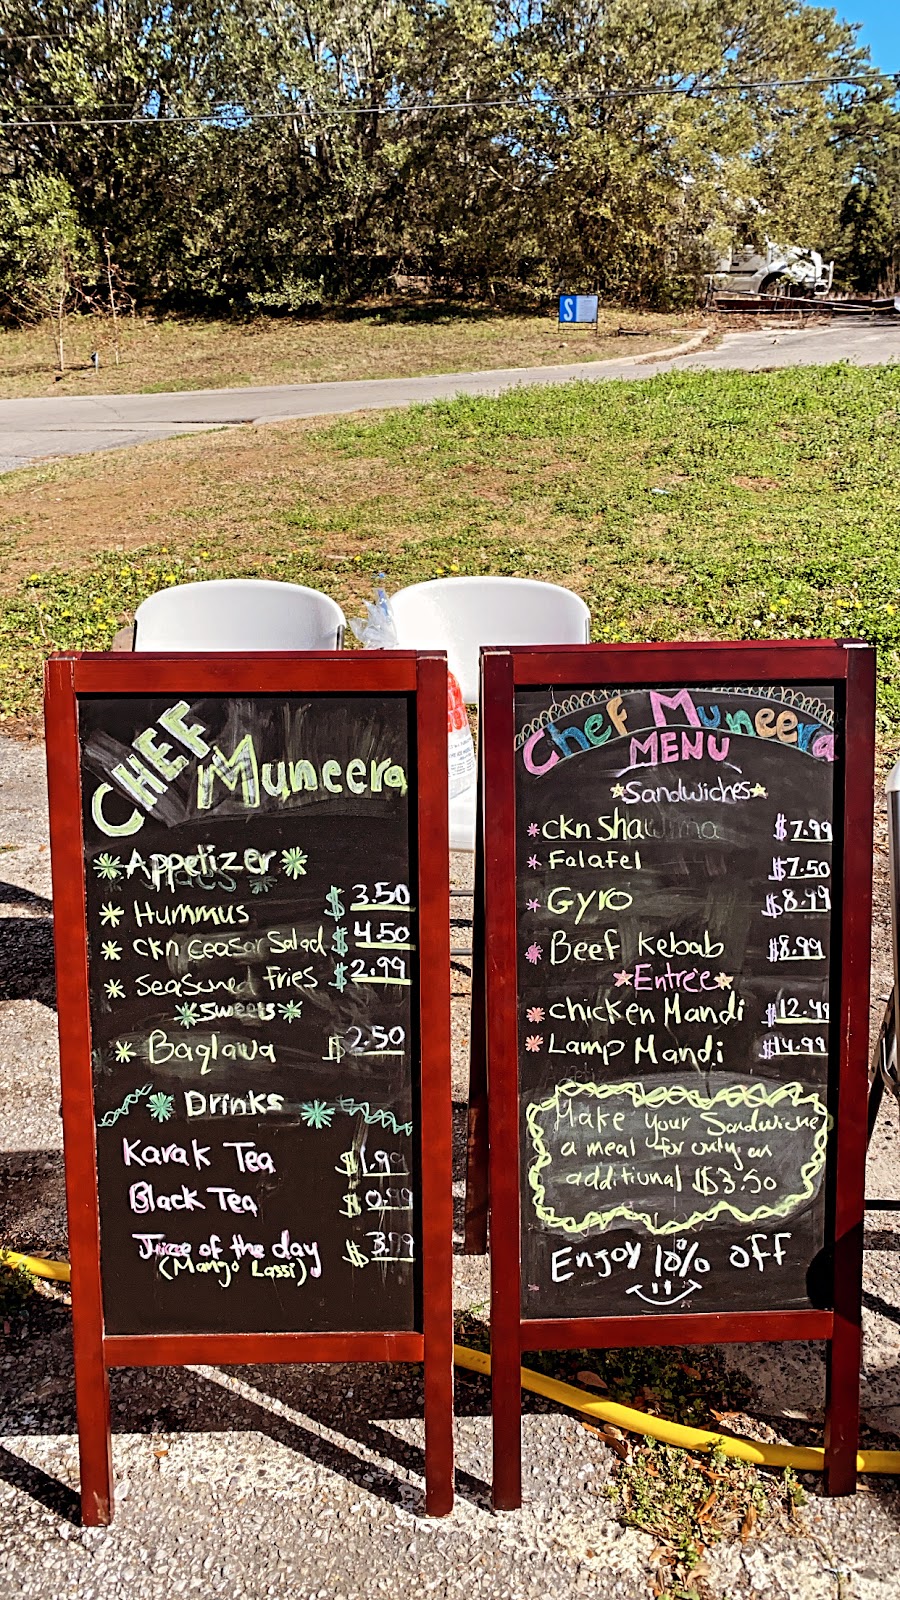 CHEF
Muneera
Appetizer
Hummus $ 3.50
ckn ceasar Salad $ 4.50
Seasuned fries $ 2.99
Sweets
Baqlava $ 2.50
Drinks
Karak Tea $1.99
Black Tea $ 0.99
Juice of the day $ 3.99
(Mango Lassi)
Chef Muneera
MENU
Sandwiches
ckn Shawrma $7.99
Falafel $7.50
Gyro $8.99
Beef kebab $8.99
Entrée
chicken Mandi $12.49
Lamp Mandi $14.99
Make your Sandwiche
a meal for only an
additional $3.50
Enjoy 10% off
S